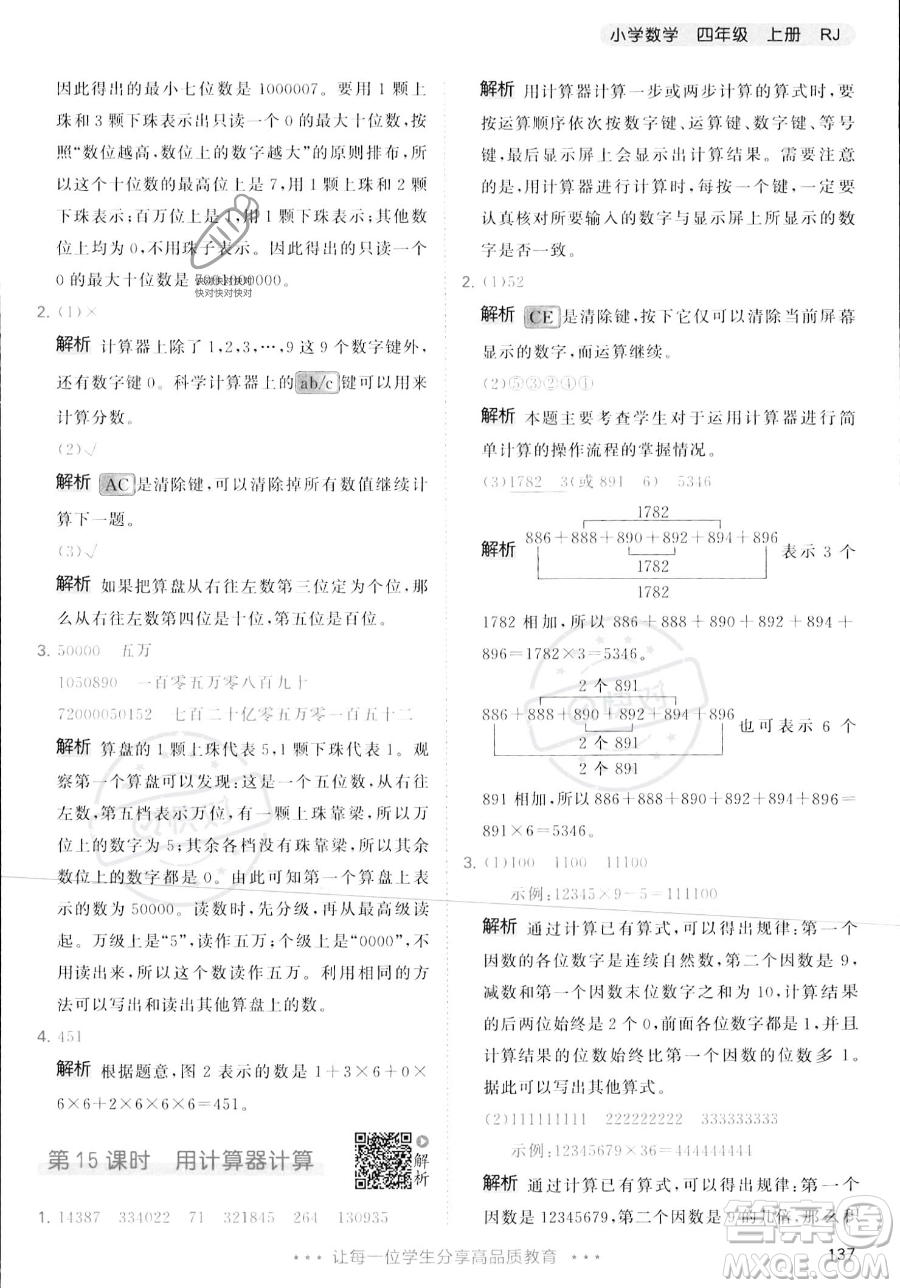 小学数学 四年级 上册 RJ
因此得出的最小七位数是 1000007。用 1 颗上
珠和 3 颗下珠表示出只读一个 0 的最大十位数，按
照“数位越高，数位上的数字越大”的原则排布，所
以这个十位数的最高位上是 7，用 1 颗上珠和 2 颗
下珠表示；百万位上是 1，用 1 颗下珠表示；其他数
位上均为 0，不用珠子表示。因此得出的只读一个
0 的最大十位数是 7001000000。
快对快对快对
快对快对快对
2. (1)×
解析 计算器上除了 1,2,3,…,9 这 9 个数字键外，
还有数字键 0。科学计算器上的 ab/c 键可以用来
计算分数。
(2)√
解析 AC 是清除键，可以清除掉所有数值继续计
算下一题。
(3)√
解析 如果把算盘从右往左数第三位定为个位，那
么从右往左数第四位是十位，第五位是百位。
3. 50000 五万
1050890 一百零五万零八百九十
72000050152 七百二十亿零五万零一百五十二
解析 算盘的 1 颗上珠代表 5,1 颗下珠代表 1。观
察第一个算盘可以发现：这是一个五位数，从右往
左数，第五档表示万位，有一颗上珠靠梁，所以万位
上的数字为 5；其余各档没有珠靠梁，所以其余各
数位上的数字都是 0。根据分析可知，算盘上表
示的数是 50000。读数时，先分级，再从最高级读
起。万级上是“5”，读作五万；个级上是“0000”，不
读。所以这个数读作五万。利用同样的方
法可以写出和读出其他算盘上的数。
4. 451
解析 根据题意，图 2 表示的数是 1+3×6+2×
6×6+2×6×6×6=451。
第 15 课时 用计算器计算
解析
1. 14387 334022 71 321845 264 130935
解析 用计算器计算一步或两步计算的算式时，要
按运算顺序依次按数字键、运算键、数字键、等号
键，最后显示屏上会显示出计算结果。需要注意
的是，用计算器进行计算时，每按一个键，一定要
认真核对所要输入的数字与显示屏上显示的数
字是否一致。
2. (1)52
解析 CE 是清除键，按下它仅可以清除当前屏幕
显示的数字，而运算继续。
(2)⑤③②④①
解析 本题主要考查学生对于运用计算器进行简
单计算的操作流程的掌握情况。
(3)1782 3(或 891 6) 5346
1782
解析 886+888+890+892+894+896 表示 3 个
1782
1782 相加，所以 886+888+890+892+894+
896=1782×3=5346。
2 个 891
886+888+890+892+894+896 也可表示 6 个
2 个 891
891 相加，所以 886+888+890+892+894+896=
891×6=5346。
3. (1)100 1100 11100
示例：12345×9-5=111100
解析 通过计算已有算式，可以得出规律：第一个
因数的各位数字是连续自然数，第二个因数是 9，
减数和第一个因数末位数字之和为 10，计算结果
的后两位始终为 2 个 0，前面各位数字都是 1，并且
计算结果的位数始终比第一个因数的位数多 1。
据此可以写出其他算式。
(2)111111111 222222222 333333333
示例：12345679×36=444444444
解析 通过计算已有算式，可以得出规律：第一个
因数是 12345679，第二个因数是 9 的几倍，那么积
让每一位学生分享高品质教育
137